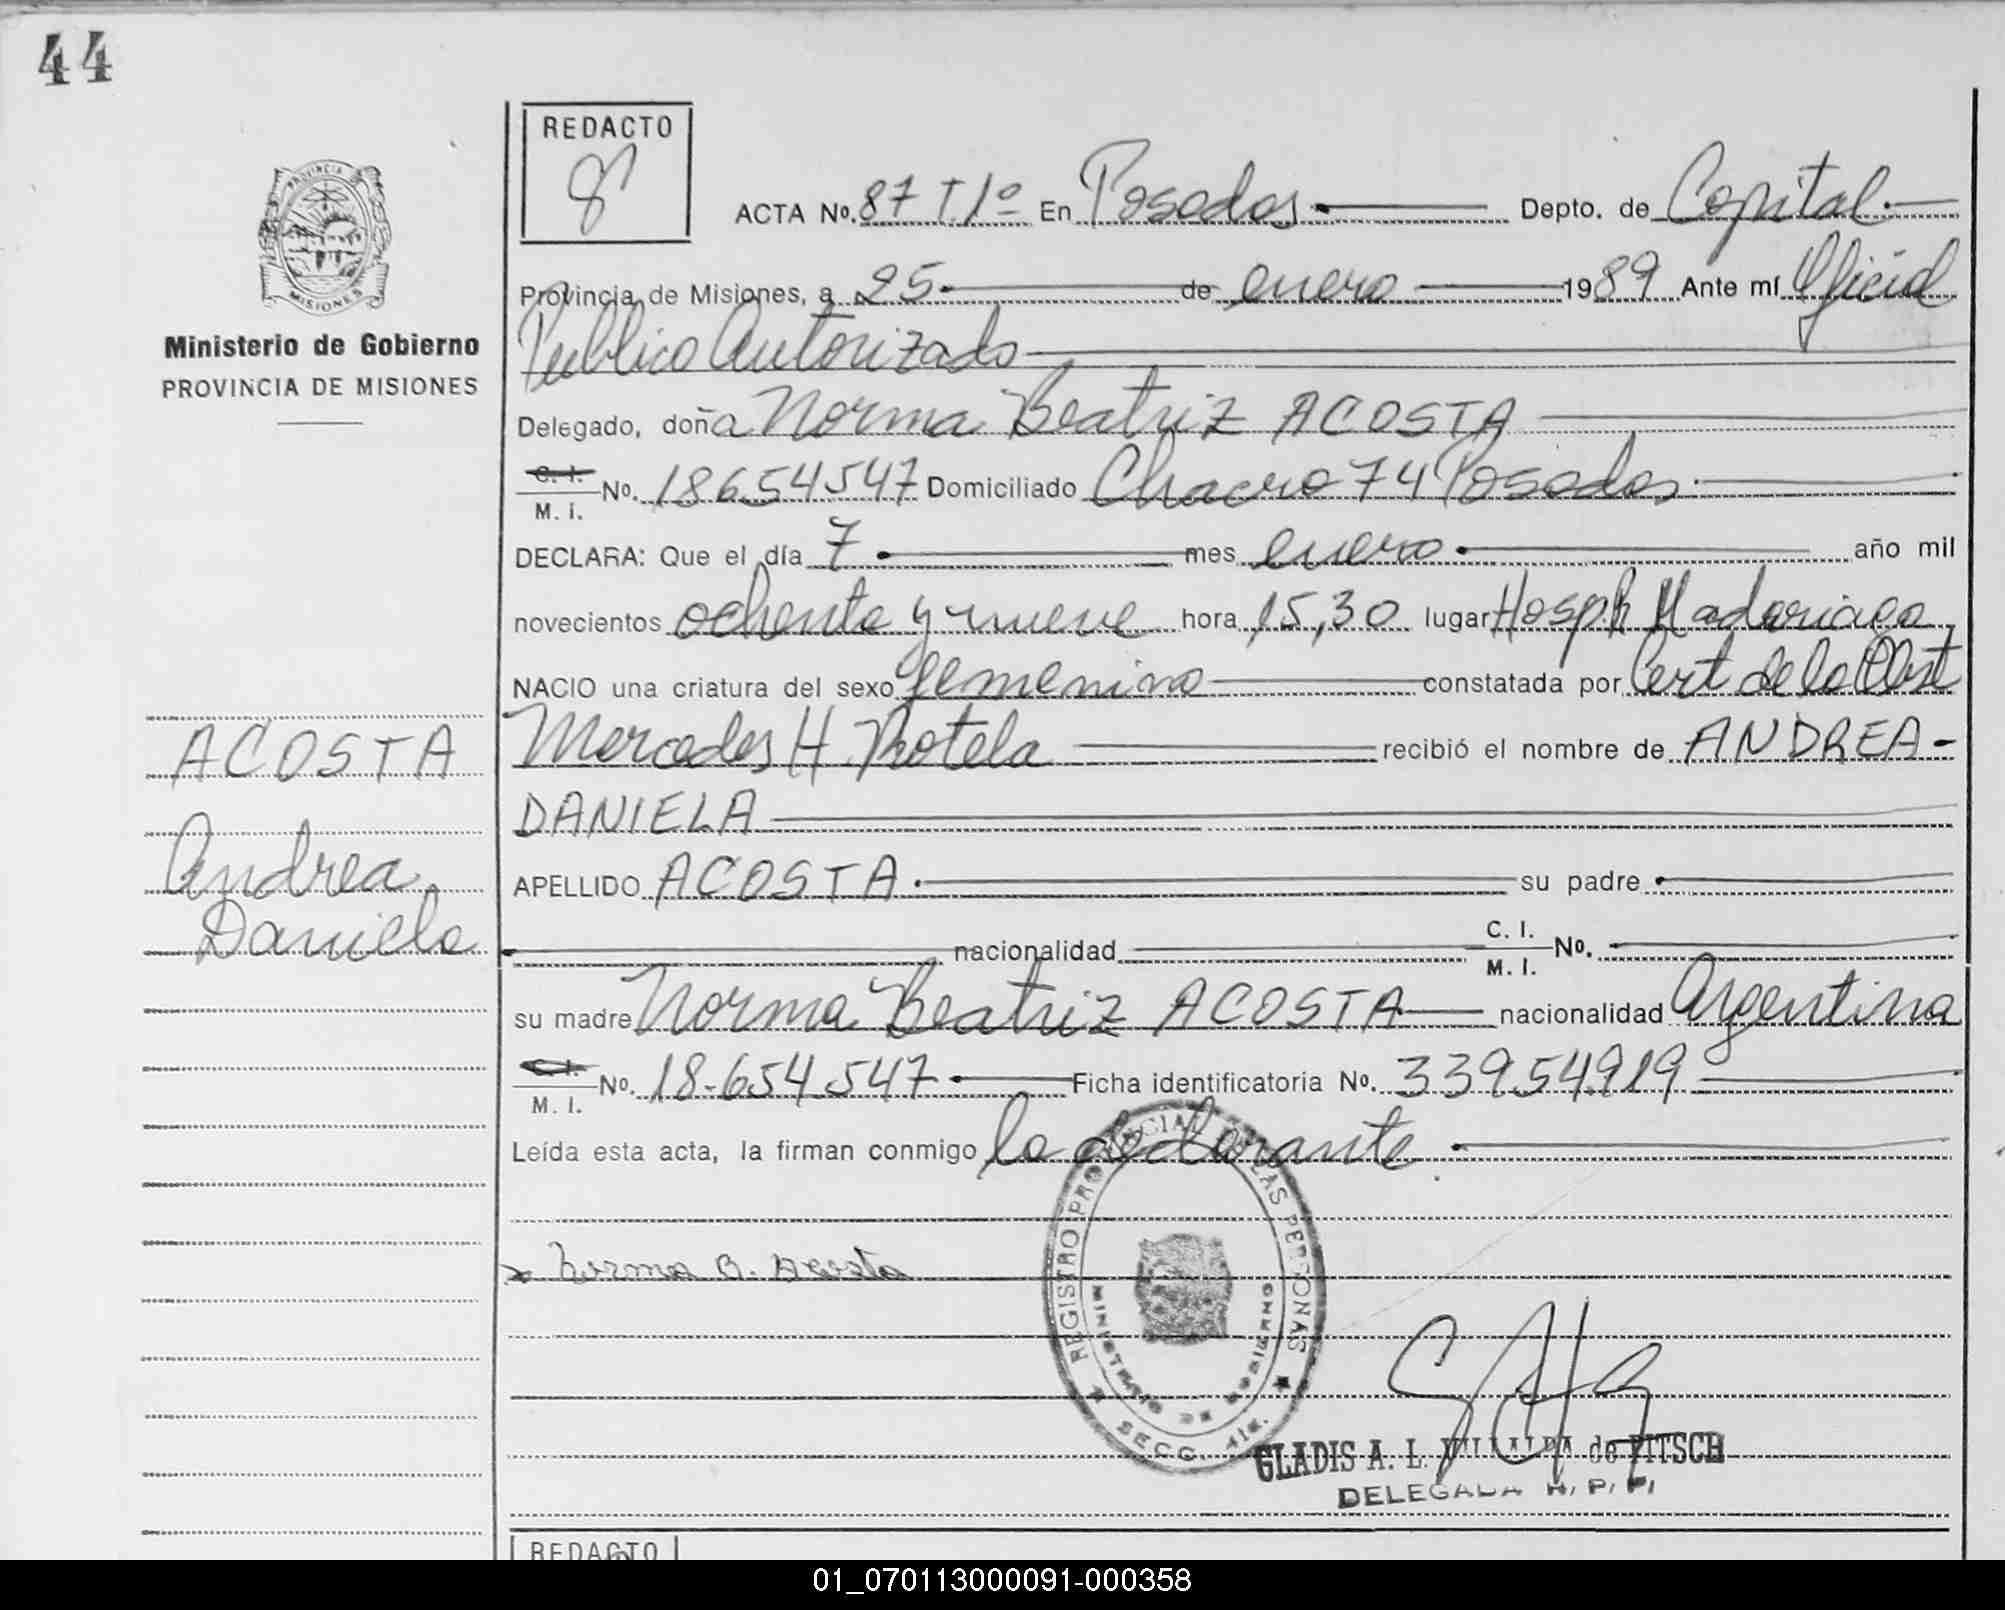 44
REDACTO
ACTA No. 87 T. 1º En Posadas Depto. de Capital
PROVINCIA
MISIONES
Provincia de Misiones, a 25 de enero 1989 Ante mí Oficial
Ministerio de Gobierno
PROVINCIA DE MISIONES
Publico Autorizado
Delegado, doña Norma Beatriz ACOSTA
C. I.
M. I. No. 18654547 Domiciliado Chacra 74 Posadas
DECLARA: Que el día 7 mes enero año mil
novecientos ochenta y nueve hora 15,30 lugar Hosp. R Madariaga
NACIO una criatura del sexo femenino constatada por Cert de la Obst
Mercedes H. Rotela recibió el nombre de ANDREA-
DANIELA
APELLIDO ACOSTA su padre
nacionalidad C. I.
M. I. No.
su madre Norma Beatriz ACOSTA nacionalidad Argentina
C. I.
M. I. No. 18.654.547 Ficha identificatoria No. 33954919
Leída esta acta, la firman conmigo la declarante
ACOSTA
Andrea
Daniela
Norma B. Acosta
REGISTRO PROVINCIAL DE LAS PERSONAS
MINISTERIO DE GOBIERNO
SECC. 4ta.
GLADIS A. L. VILLALBA de PITSCH
DELEGADA R. P. P.
REDACTO
01_070113000091-000358